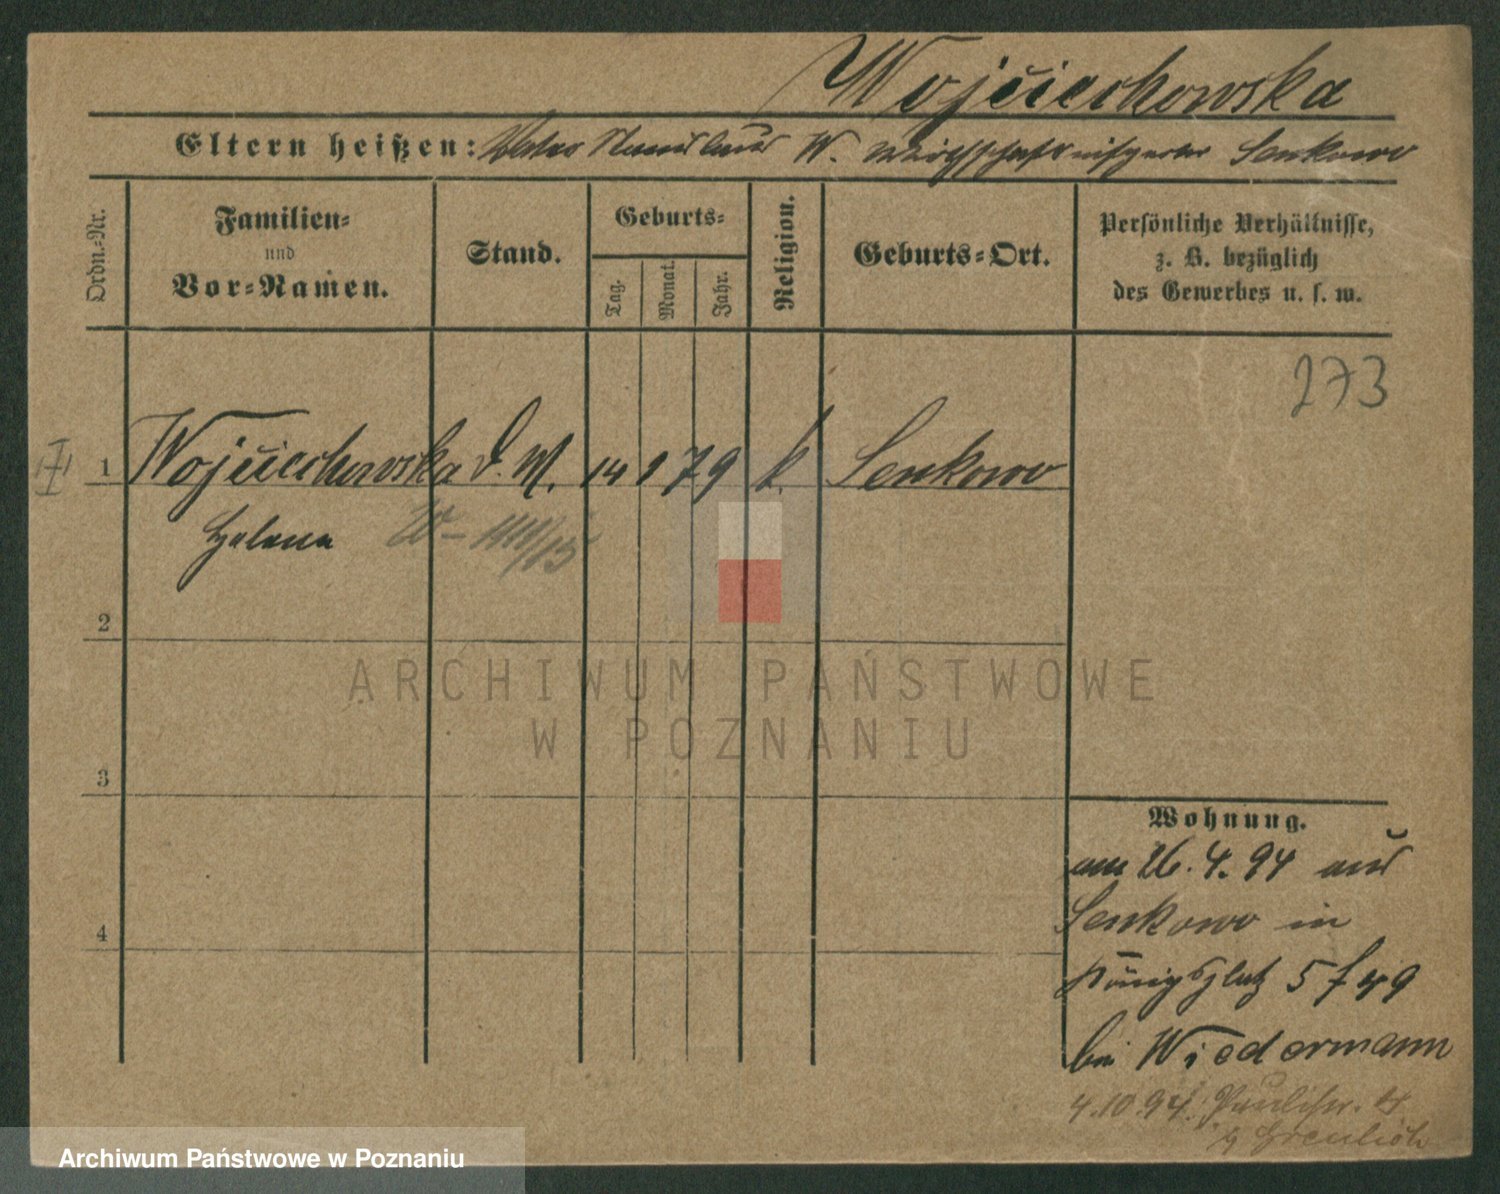 Wojciechowska
Eltern heißen: Vater Stanislaus W. Senkowo
Ordn.-Nr.
Familien-
und
Vor-Namen.
Stand.
Geburts-
Tag.
Monat.
Jahr.
Religion.
Geburts-Ort.
Persönliche Verhältnisse,
z. B. bezüglich
des Gewerbes u. s. w.
273
I
1 Wojciechowska d. M. 14 1 79 k. Senkowo
Helena
2
3
4
ARCHIWUM PAŃSTWOWE
W POZNANIU
Wohnung.
am 26. 4. 94 aus
Senkowo in
Königsplatz 5
bei Wiedermann
4.10.94. Paulistr. 4
Archiwum Państwowe w Poznaniu